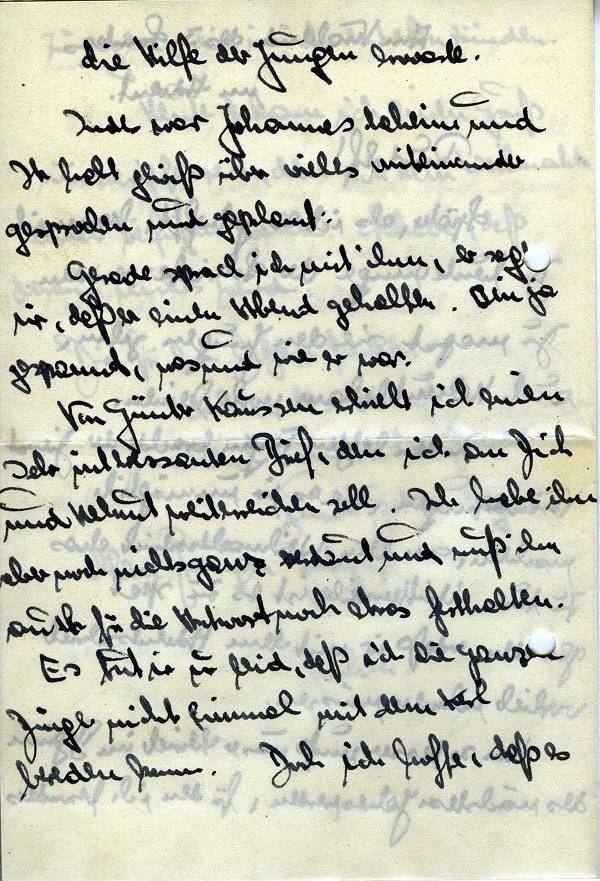 die Hilfe der Jungen erwarte.
war Johannes daheim und
Ihr habt gewiß über vieles miteinander
gesprochen und geplant.
Gerade sprach ich mit ihm, er sagt
mir, daß er einen Abend gehalten. Bin ja
gespannt, was und wie er war.
Von Günter Kaussen erhielt ich einen
sehr interessanten Brief, den ich an Dich
und Helmut weiterreichen soll. Ich habe ihn
aber noch nicht ganz verdaut und muß ihn
auch für die Antwort noch etwas festhalten.
Es tut mir leid, daß ich die ganzen
Dinge nicht einmal mit dem Karl
bereden kann. Doch ich hoffe, daß es